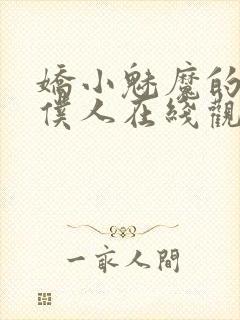 嬌小魅魔的
僕人在綫觀
一衆人間